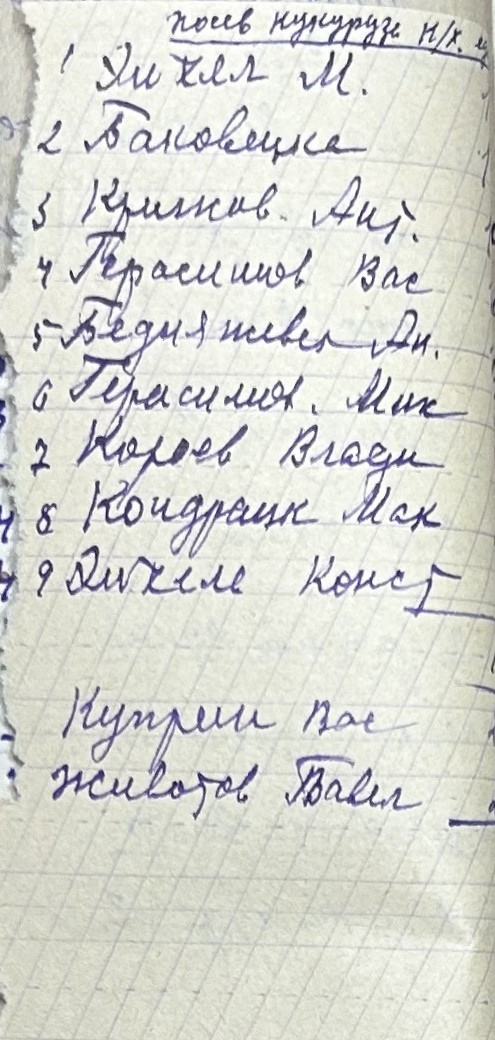 посев кукурузе н/х.
1 Эихел М.
2 Баковецка
3 Крижков. Ант.
4 Герасимов Вас
5 Ан.
6 Герасимов. Мих
7 Короев Влади
8 Кондрацк Мак
9 Эихеле Конст
Куприн Вас
Животов Павел